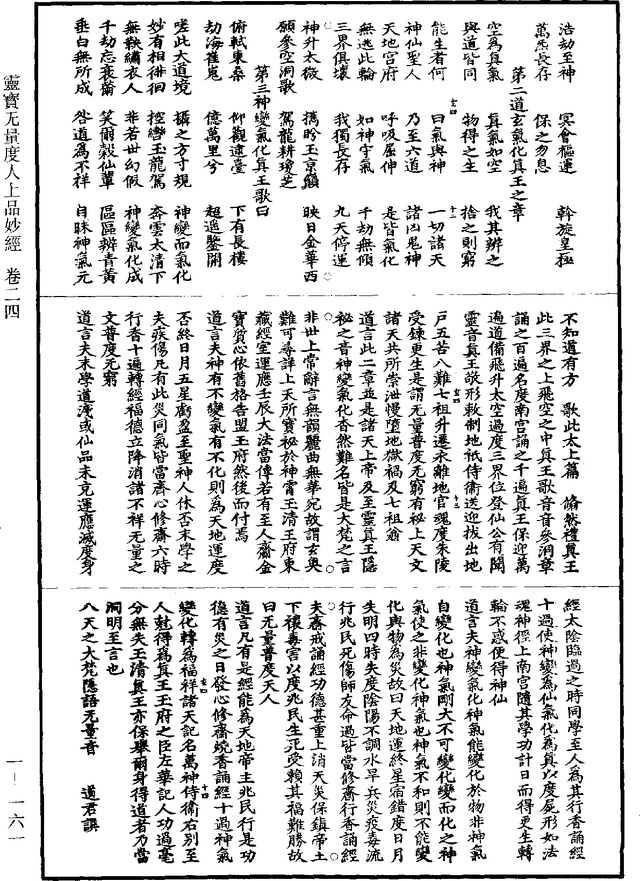 浩劫至神　冥會樞運　斡旋皇極
萬炁長存　保之勿息
第二道玄氣化真王之章
空為真氣　真氣如空　我其辨之
與道皆同　物得之生　捨之則窮
能生者何　曰氣與神　一切諸天
神仙聖人　乃至六道　諸凶鬼神
天地宮府　呼吸屈伸　是皆氣化
無逃此輪　如神守氣　千劫無傾
三界俱壞　我獨長存　九天停運
神升太微　攜盻玉京籟　映日金華西
願參空洞歌　駕龍耕瓊芝
第三神變氣化真王歌曰
俯軾東桑　仰觀逮臺　下有長樓
劫海崔嵬　億萬里兮　超遥鑒開
嗟此大道境　攝之方寸規　神變而氣化
妙有相徘徊　控轡玉龍駕　奔雲太清下
無鞅繡衣人　非若世幻假　神變氣化成
千劫忘衰齒　笑爾穀仙輩　區區辨青黄
垂白無所成　咎道為不祥　自昧神氣元
不知道有方　歌此太上篇　翛然禮真王
此三界之上飛空之中真王歌音音參洞章
誦之百遍名度南宮誦之千遍真王保迎萬
遍道備飛升太空過度三界位登仙公有聞
靈音真王敬形敕制地祇侍衛送迎拔出地
户五苦八難七祖升遷永離地官魂度朱陵
受鍊更生是謂无量普度无窮有祕上天文
諸天共所崇泄慢墮地獄禍及七祖翁
道言此二章並是諸天上帝及至靈真王隱
祕之音神變氣化杳然難名皆是大梵之言
非世上常辭言無韻麗曲無華宛故謂玄奥
難可尋詳上天所寶祕於神霄玉清王府東
藏經室運應壬辰大法當傳若有至人齎金
寶質心依舊格告盟王府然後而付焉
道言夫神有不變氣有不化則為天地運度
否終日月五星虧盈至聖神人休否末學之
夫疾傷凡有此災同氣皆當齋心修齋六時
行香十遍轉經福德立降消諸不祥无量之
文普度无窮
道言夫末學道淺或仙品未充運應滅度身
經太陰臨過之時同學至人為其行香誦經
十過使神變為仙氣化為真以度屍形如法
魂神徑上南宮隨其學功計日而得更生轉
輪不惑便得神仙
道言夫神變氣化神氣能變化於物非神氣
自變化也神氣剛大不可變化變而化之神
氣使之非變化神氣也神氣不和則不能變
化與物為災故曰天地運終星宿錯度日月
失明四時失度陰陽不調水旱兵災疫毒流
行兆民死傷師友命過皆當修齋行香誦經
夫齋戒誦經功德甚重上消天災保鎮帝土
下禳毒害以度兆民生死受賴其福難勝故
曰无量普度天人
道言凡有是經能為天地帝主兆民行是功
德有災之日發心修齋燒香誦經十過神氣
變化轉為福祥諸天記名萬神侍衛右别至
人尅得為真王王府之臣左華記人功過毫
分無失玉清真王亦保舉爾身得道者乃當
洞明至言也
八天之大梵隱語无量音　道君譔
靈寶无量度人上品妙經　卷二四
一—一六一